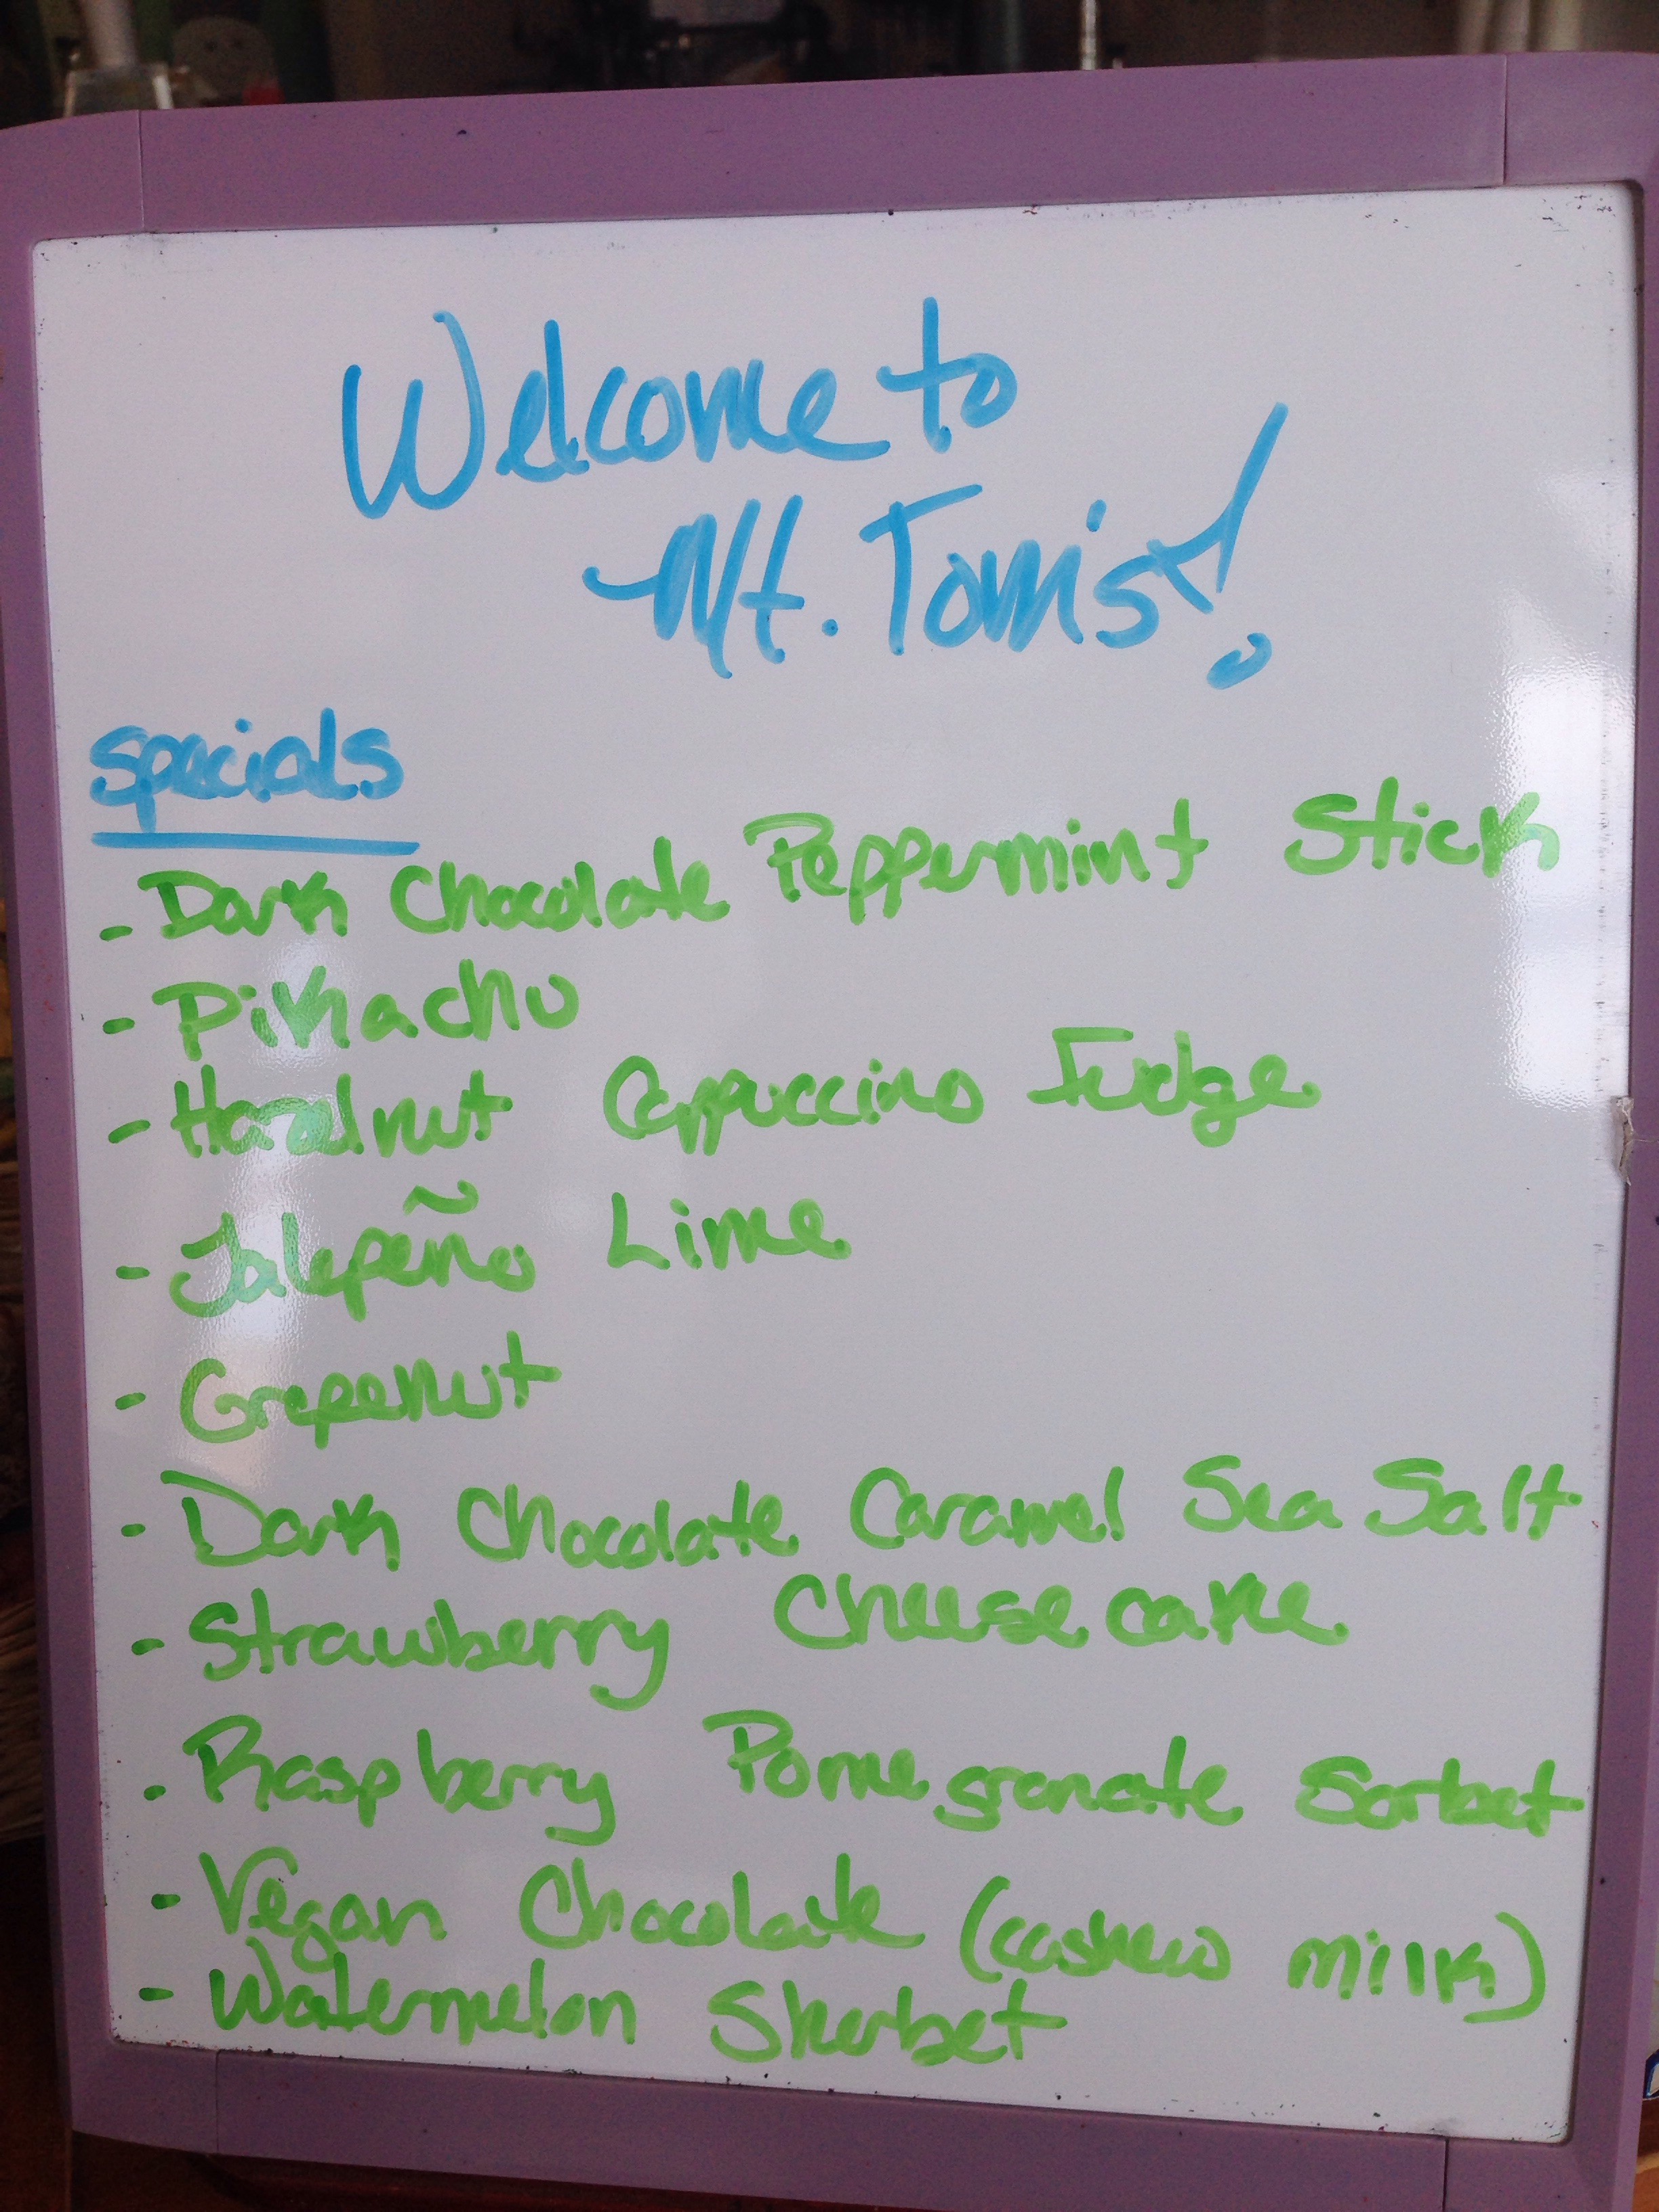 Welcome to
Mt. Tom's!
specials
- Dark Chocolate Peppermint Stick
- Pikachu
- Hazelnut Cappuccino Fudge
- Jalepeño Lime
- Grapenut
- Dark Chocolate Caramel Sea Salt
- Strawberry Cheesecake
- Raspberry Pomegranate Sorbet
- Vegan Chocolate (cashew milk)
- Watermelon Sherbet